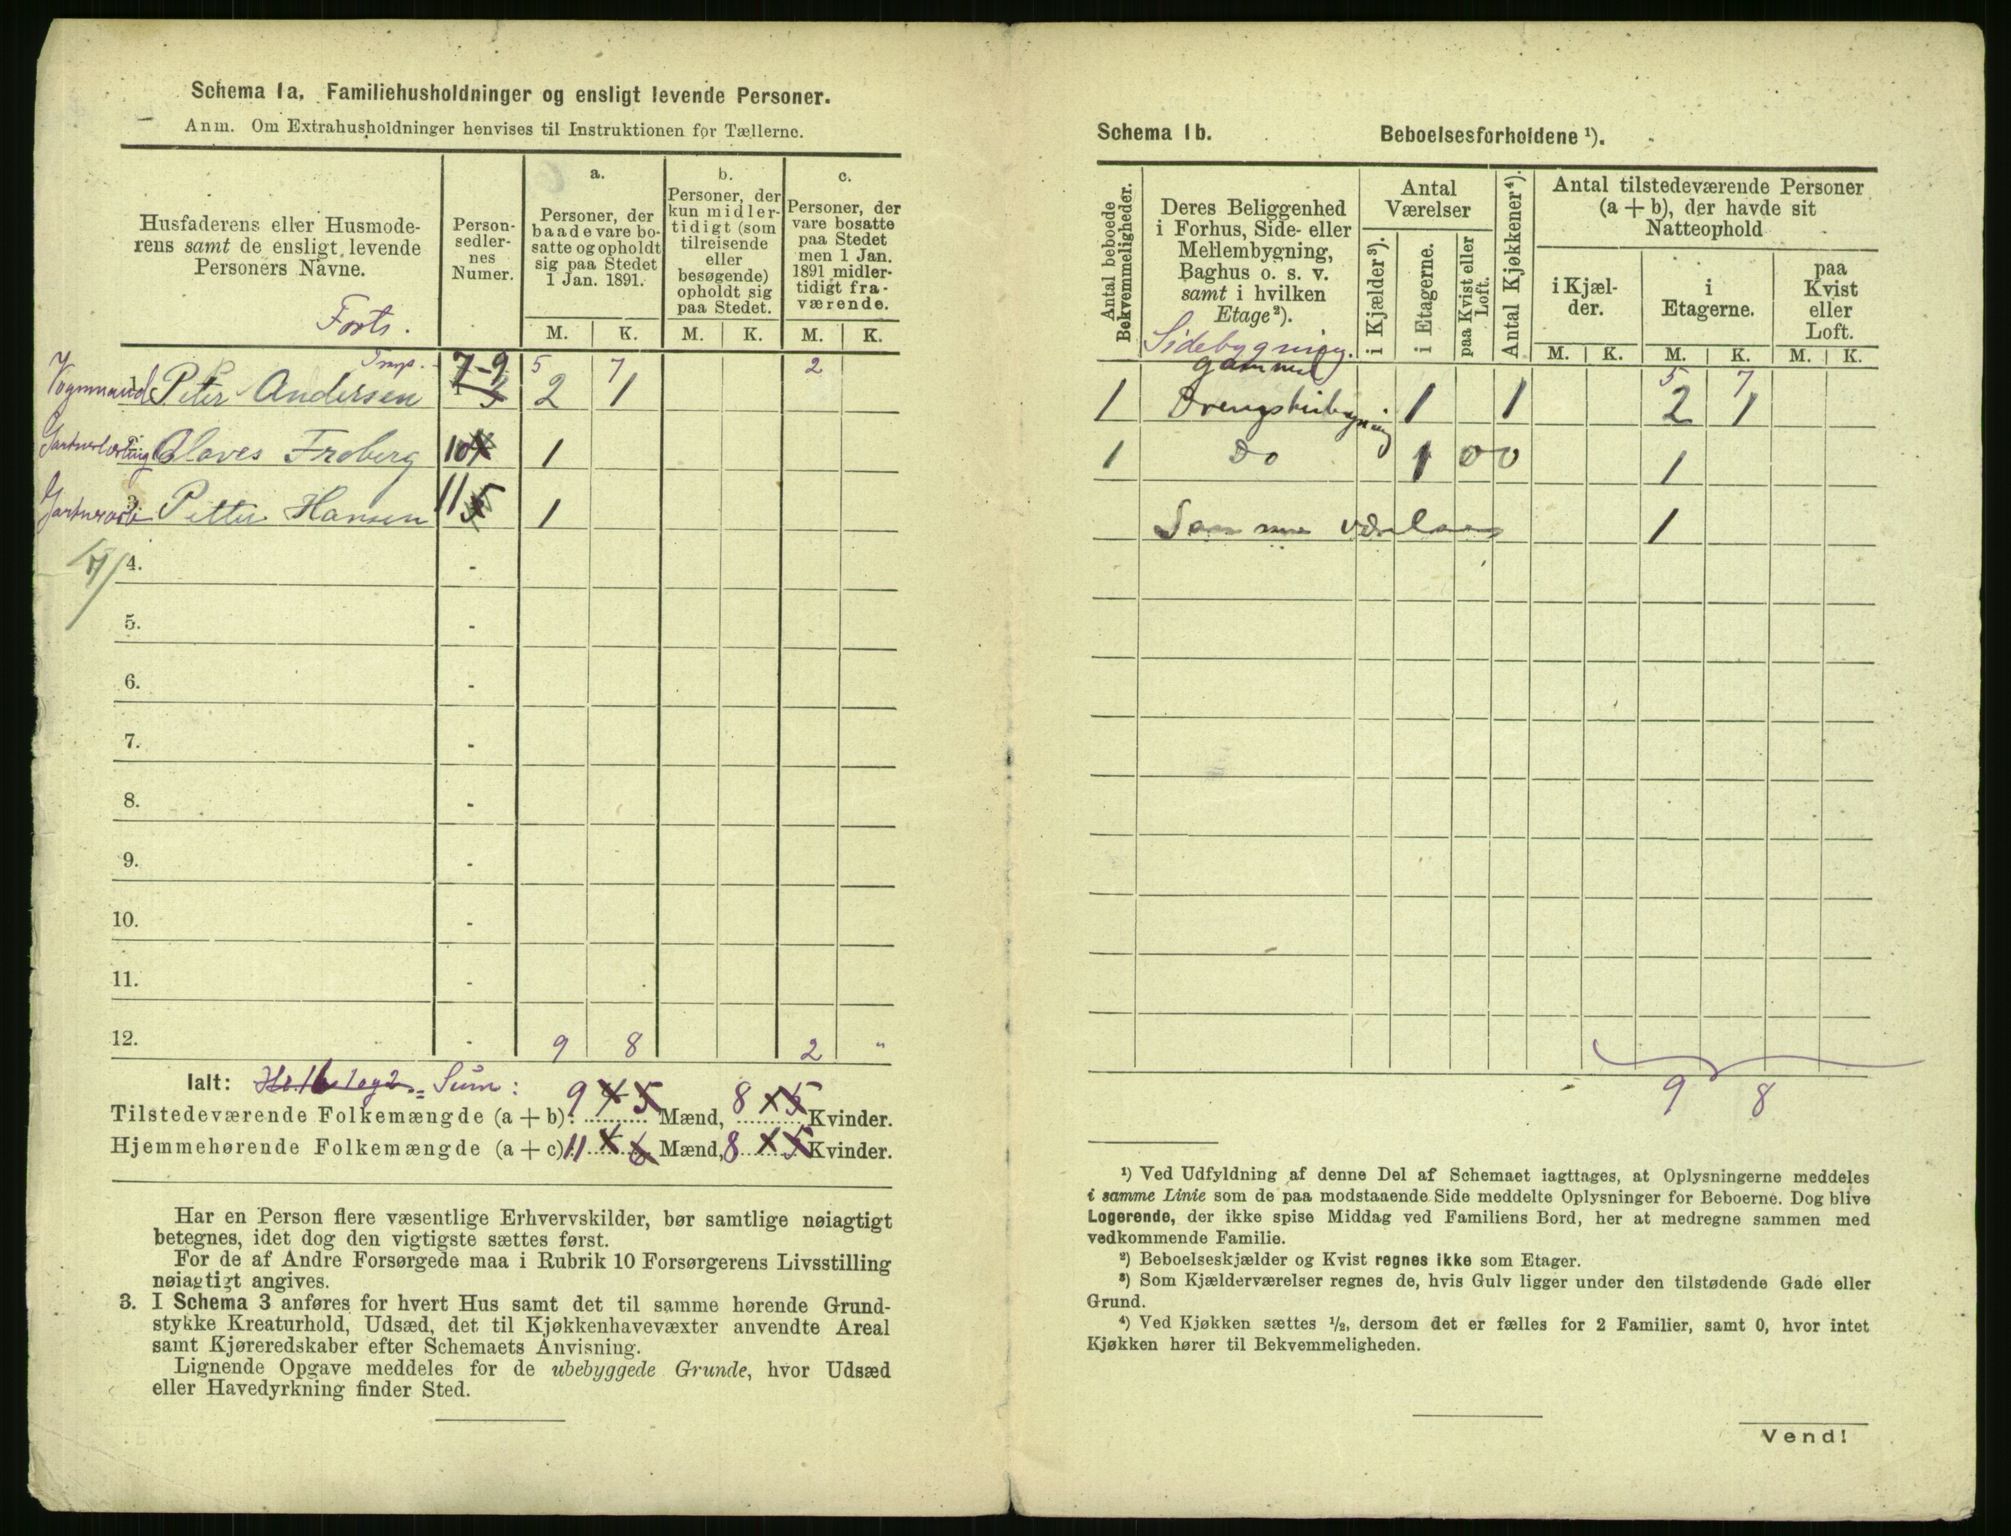 Schema 1a. Familiehusholdninger og ensligt levende Personer.
Anm. Om Extrahusholdninger henvises til Instruktionen for Tællerne.
Husfaderens eller Husmode-
rens samt de ensligt levende
Personers Navne.
Forts.
Person-
sedler-
nes
Numer.
a.
Personer, der
baade vare bo-
satte og opholdt
sig paa Stedet
1 Jan. 1891.
b.
Personer, der
kun midler-
tidigt (som
tilreisende
eller
besøgende)
opholdt sig
paa Stedet.
c.
Personer, der
vare bosatte
paa Stedet
men 1 Jan.
1891 midler-
tidigt fra-
værende.
M. K. M. K. M. K.
Tmp. 7-9 5 7 2
Peter Andersen 2 1
Olaves Froberg 10 1
3. Petter Hansen 11 1
4. -
5. -
6. -
7. -
8. -
9. -
10. -
11. -
12. - 9 8 2 "
Ialt: Sum:
Tilstedeværende Folkemængde (a + b): 9 Mænd, 8 Kvinder.
Hjemmehørende Folkemængde (a + c) 11 Mænd, 8 Kvinder.
Har en Person flere væsentlige Erhvervskilder, bør samtlige nøiagtigt
betegnes, idet dog den vigtigste sættes først.
For de af Andre Forsørgede maa i Rubrik 10 Forsørgerens Livsstilling
nøiagtigt angives.
3. I Schema 3 anføres for hvert Hus samt det til samme hørende Grund-
stykke Kreaturhold, Udsæd, det til Kjøkkenhavevæxter anvendte Areal
samt Kjøreredskaber efter Schemaets Anvisning.
Lignende Opgave meddeles for de ubebyggede Grunde, hvor Udsæd
eller Havedyrkning finder Sted.
Schema 1b. Beboelsesforholdene ¹).
Antal beboede
Bekvemmeligheder.
Deres Beliggenhed
i Forhus, Side- eller
Mellembygning,
Baghus o. s. v.
samt i hvilken
Etage²).
Sidebygning.
Antal
Værelser
i Kjælder³).
i Etagerne.
paa Kvist eller
Loft.
Antal Kjøkkener⁴).
Antal tilstedeværende Personer
(a + b), der havde sit
Natteophold
i Kjæl-
der.
i
Etagerne.
paa
Kvist
eller
Loft.
M. K. M. K. M. K.
gammel 5 7
1 1 1 2 1
1 Do 1 0 0 1
Samme værelse 1
9 8
¹) Ved Udfyldning af denne Del af Schemaet iagttages, at Oplysningerne meddeles
i samme Linie som de paa modstaaende Side meddelte Oplysninger for Beboerne. Dog blive
Logerende, der ikke spise Middag ved Familiens Bord, her at medregne sammen med
vedkommende Familie.
²) Beboelseskjælder og Kvist regnes ikke som Etager.
³) Som Kjælderværelser regnes de, hvis Gulv ligger under den tilstødende Gade eller
Grund.
⁴) Ved Kjøkken sættes ½, dersom det er fælles for 2 Familier, samt 0, hvor intet
Kjøkken hører til Bekvemmeligheden.
Vend!